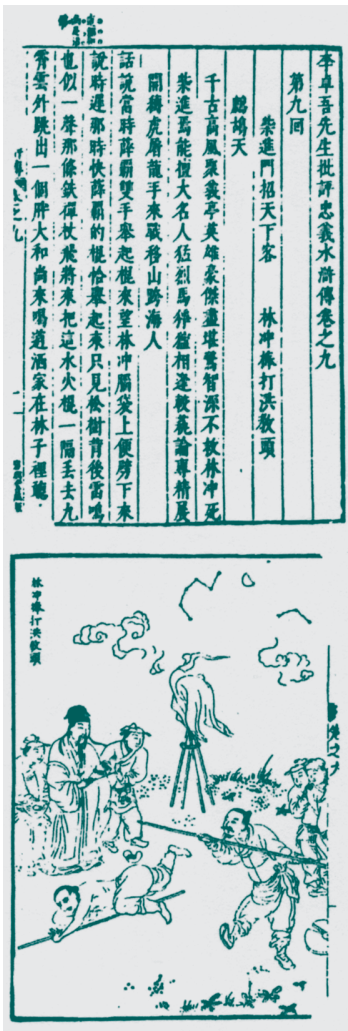 李卓吾先生批評忠義水滸傳卷之九
第九回
柴進門招天下客　林冲棒打洪教頭
鷓鴣天
千古高風聚義亭英雄豪傑盡堪驚智深不救林冲死
柴進焉能擅大名人猛烈馬猙獰相逢較藝論專精展
開縛虎屠龍手來戰移山跨海人
話說當時薛霸雙手舉起棍來望林冲腦袋上便劈下來
說時遲那時快薛霸的棍恰舉起來只見松樹背後雷鳴
也似一聲那條鐵禪杖飛將來把這水火棍一隔丟去九
霄雲外跳出一個胖大和尚來喝道洒家在林子裡聽
林冲棒打洪教頭